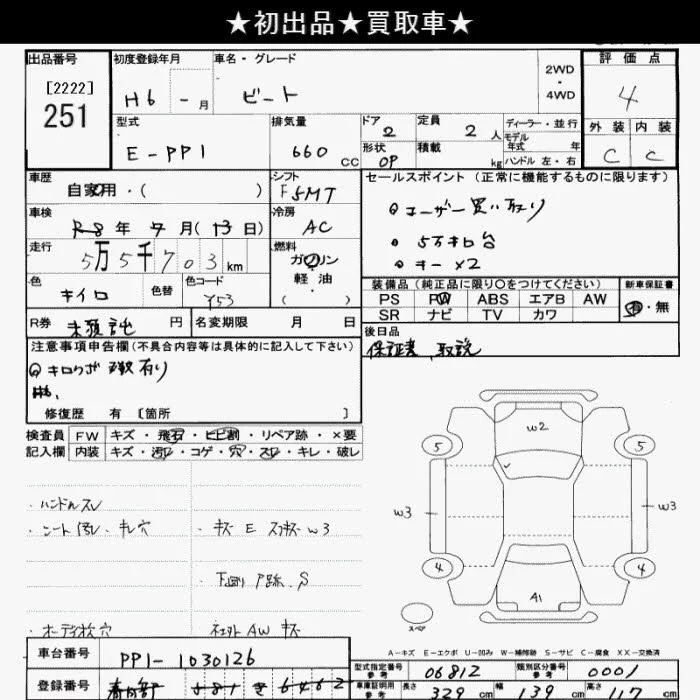 ★初出品★買取車★
出品番号
[2222]
251
初度登録年月
H6 - 月
車名・グレード
ビート
2WD
・
4WD
評価点
4
型式
E-PP1
排気量
660 CC
ドア
2
定員
2 人
ディーラー・並行
モデル
年式 年
形状
OP
積載
kg
ハンドル 左・右
外装 内装
C C
車歴
自家用・( )
シフト
F5MT
セールスポイント (正常に機能するものに限ります)
ユーザー買い取り
5万キロ台
キー×2
車検
R8 年 7 月(13日)
冷房
AC
走行
5万5千703km
燃料
ガソリン
・
軽油
・
( )
色
キイロ
色替
色コード
Y53
装備品(純正品に限り○をつけてください)
新車保証書
PS PW ABS エアB AW
SR ナビ TV カワ
有・無
R券 未預託 円
名変期限 月 日
後日品
保証書、取説
注意事項申告欄(不具合内容等は具体的に記入して下さい)
修復歴 有 [箇所 ]
検査員
記入欄
FW キズ・飛石・ヒビ割・リペア跡・×要
内装 キズ・汚れ・コゲ・穴・スレ・キレ・破レ
・ハンドルスレ
・シート汚レ・キレ穴
・キズ E スリキズ W3
・下廻り
S
・オーディオ枕穴
・社外AW キズ
W2
5 5
W3 W3
4 4
A1
スペア
A-キズ E-エクボ U-凹み W-補修跡 S-サビ C-腐食 XX-交換済
車台番号
PP1-1030126
型式指定番号
参考
06812
類別区分番号
参考
0001
登録番号
車庫証明用
参考
長さ 329 cm 幅 139 cm 高さ 117 cm